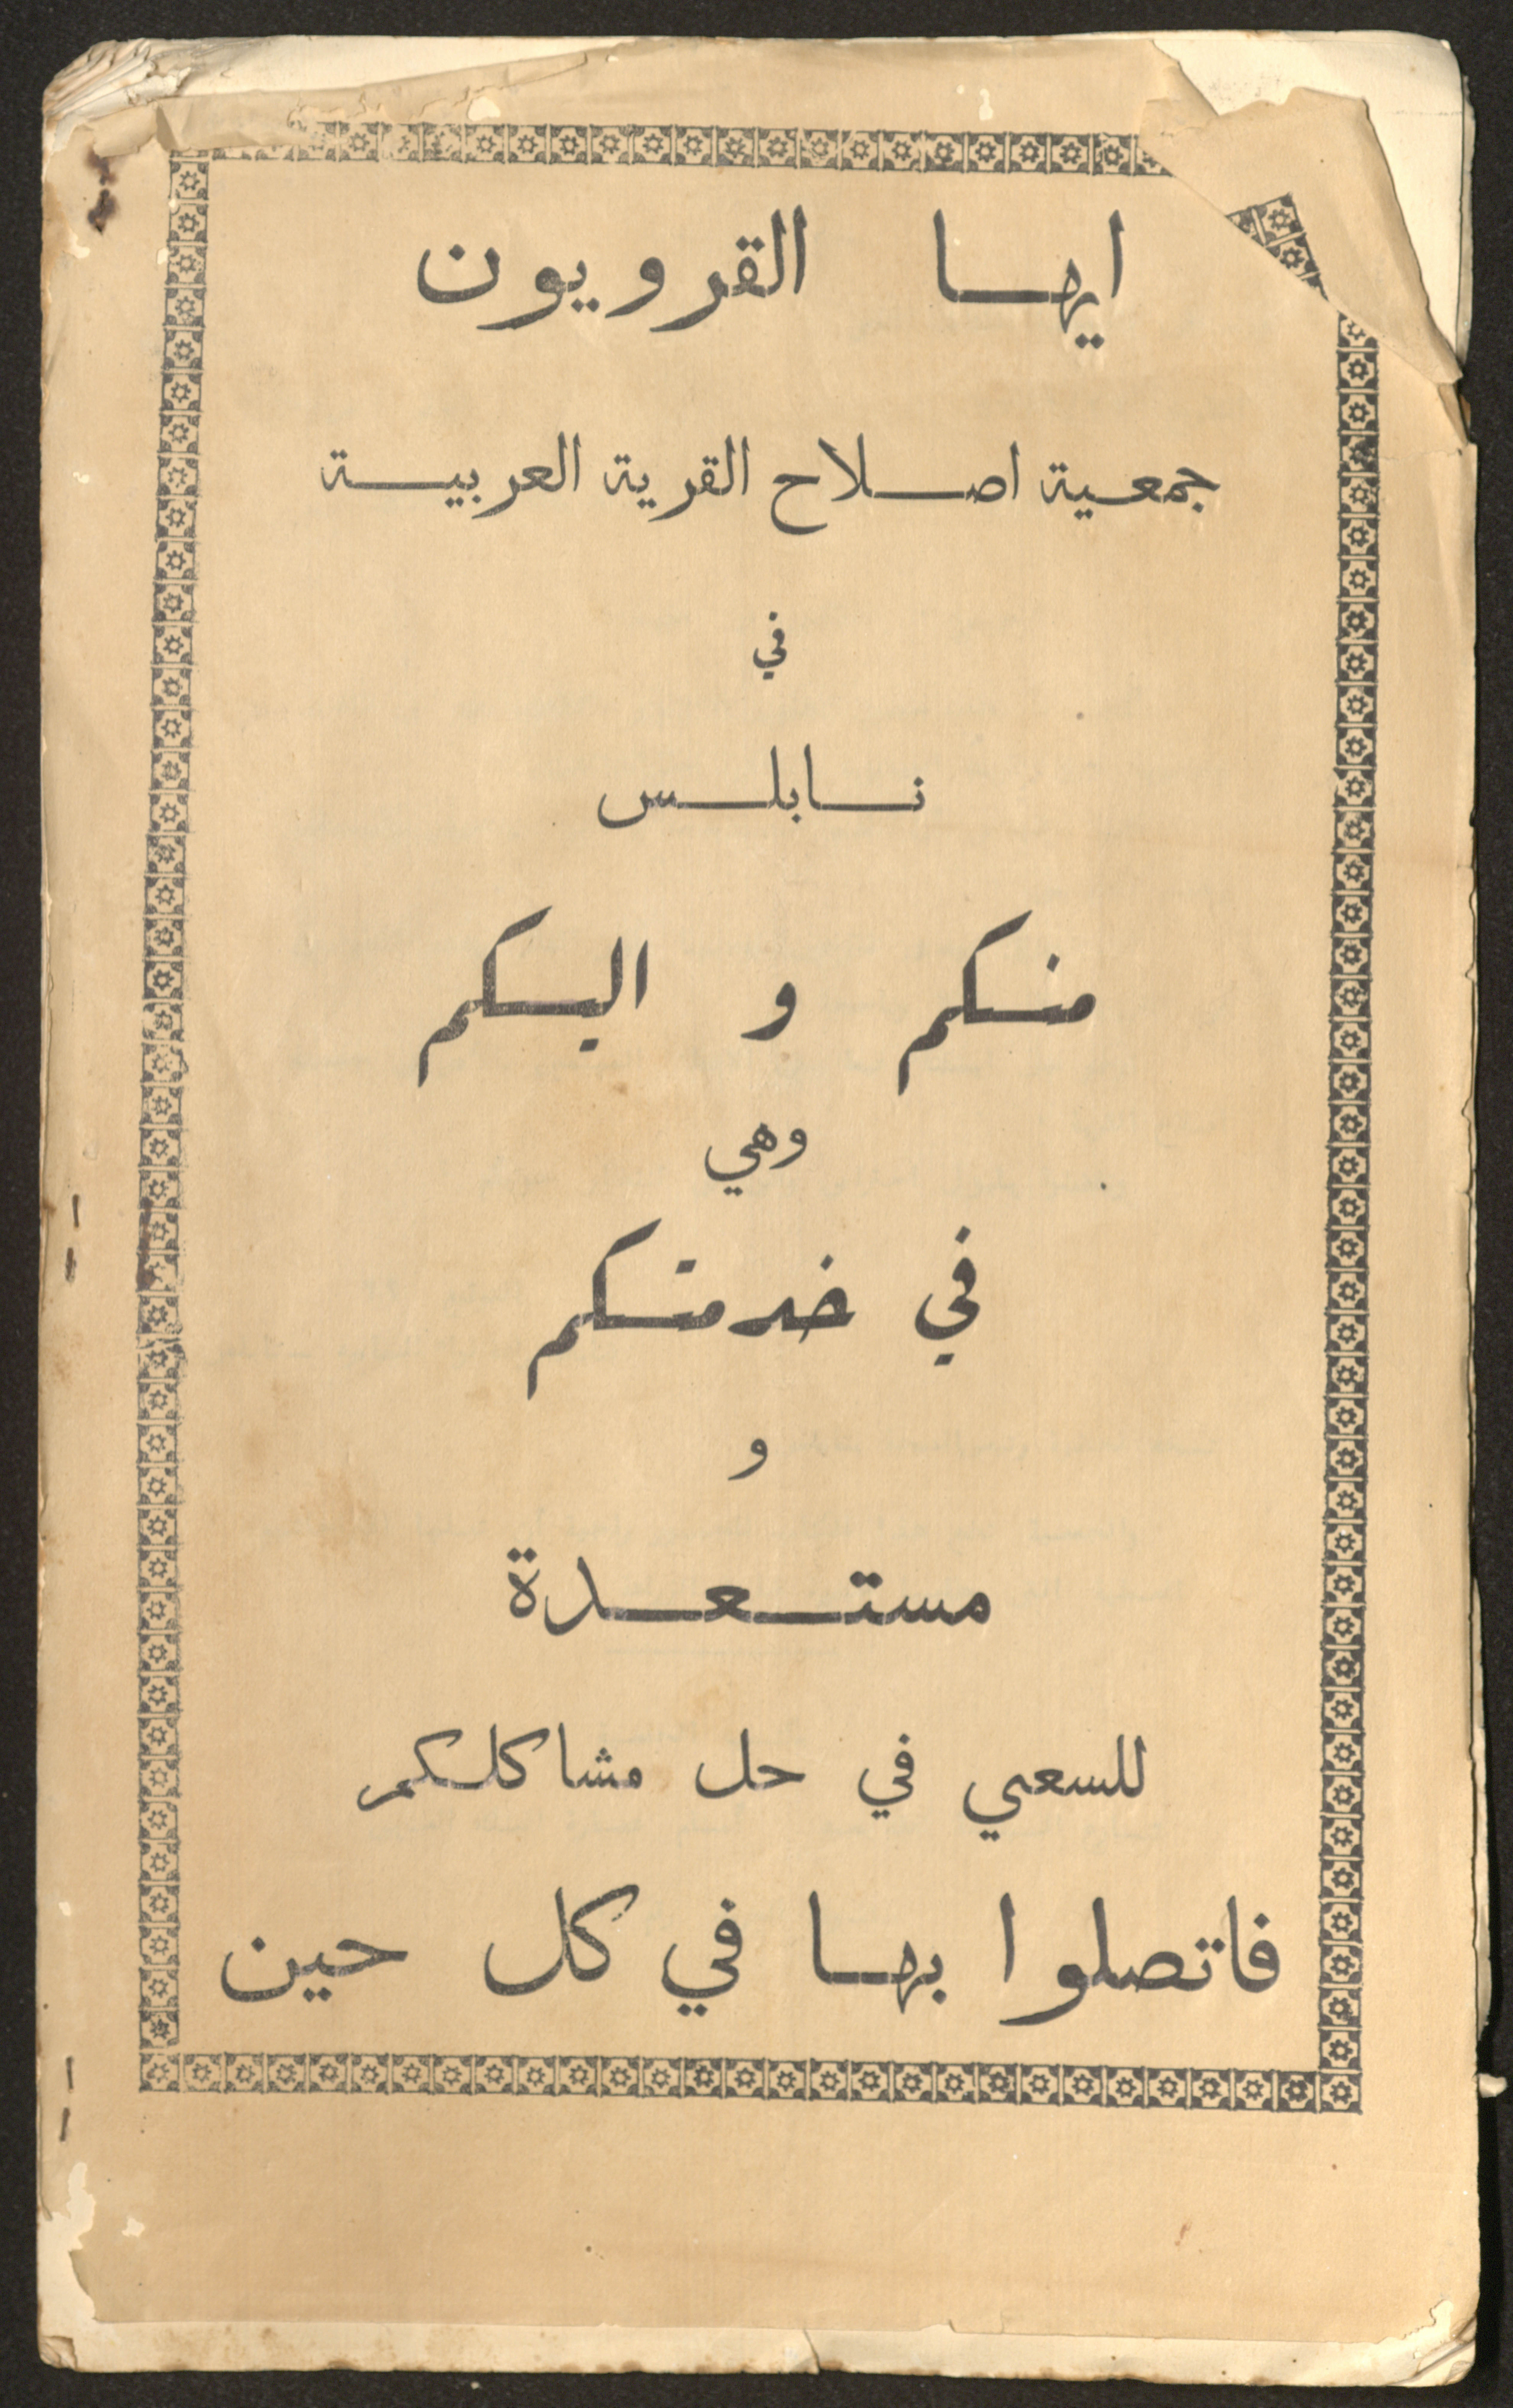 ايها القرويون
جمعية اصلاح القرية العربية
في
نابلس
منكم و اليكم
وهي
في خدمتكم
و
مستعدة
للسعي في حل مشاكلكم
فاتصلوا بها في كل حين